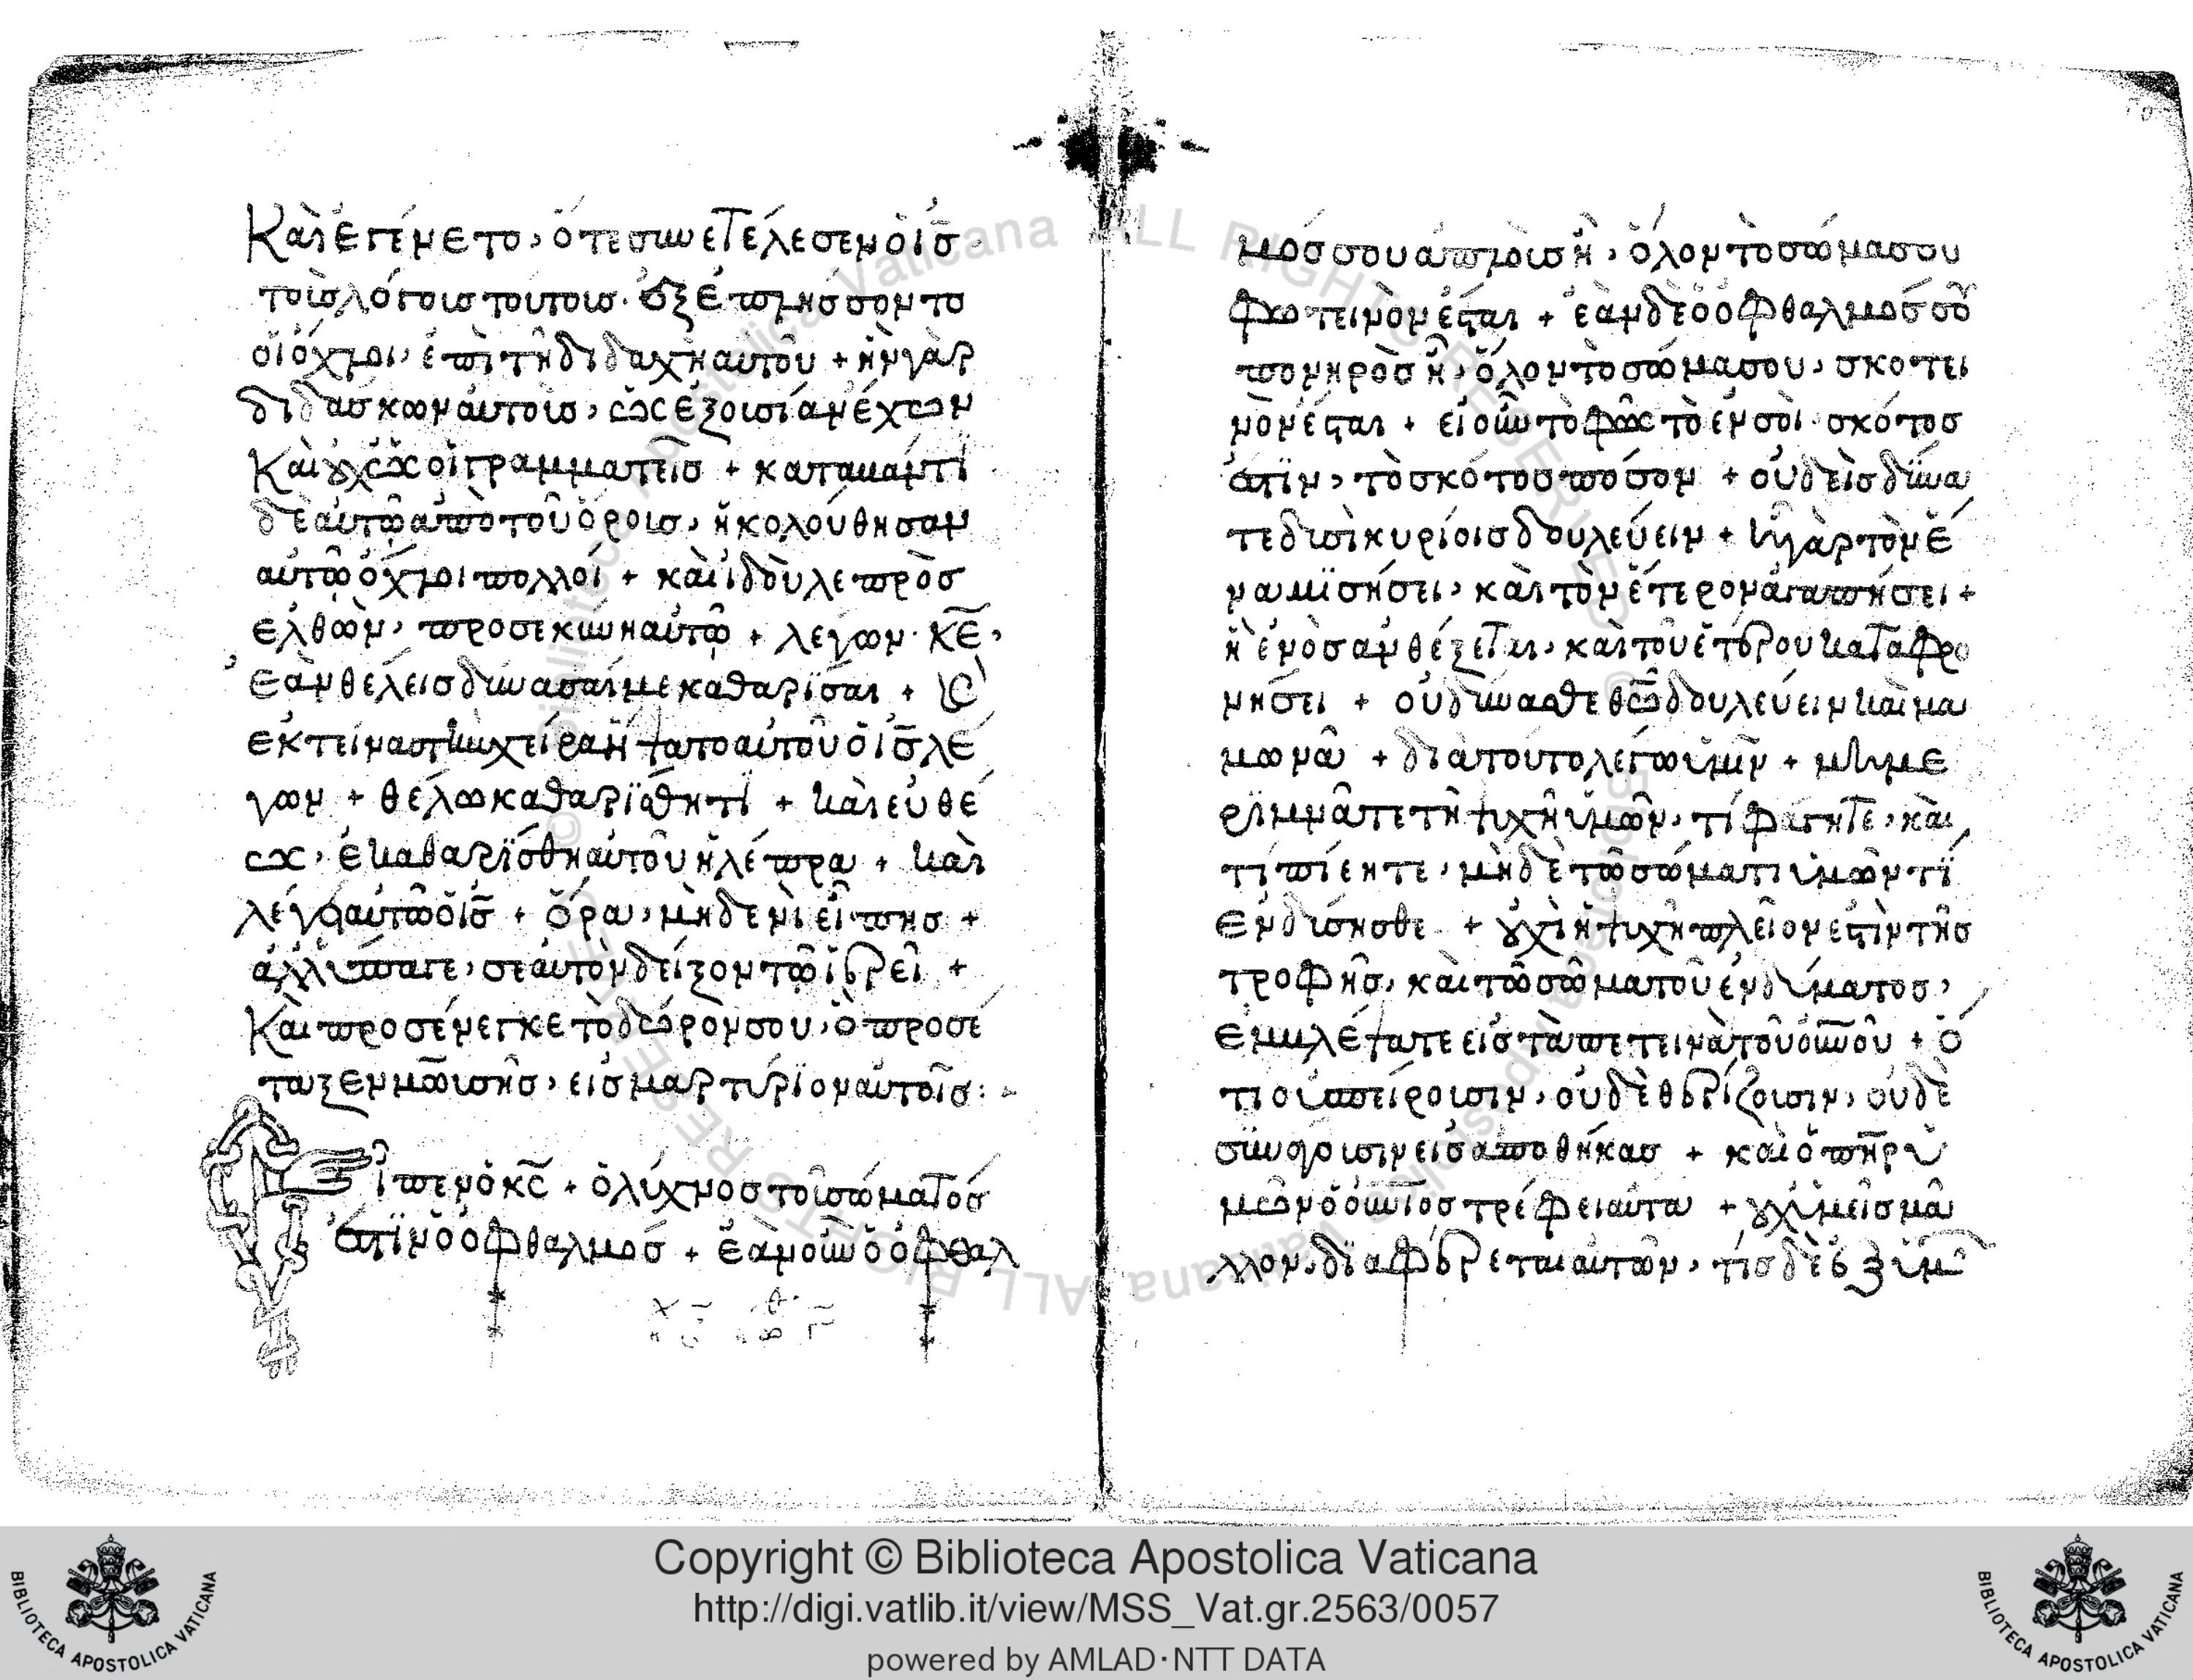 Καὶ ἐγένετο, ὅτε συνετέλεσεν ὁ ις
τοὺς λόγους τούτους· ἐξεπλήσσοντο
οἱ ὄχλοι, ἐπὶ τῇ διδαχῇ αὐτοῦ + ἦν γὰρ
διδάσκων αὐτοὺς, ὡς ἐξουσίαν ἔχων
Καὶ οὐχ ὡς οἱ γραμματεῖς + καταβάντι
δὲ αὐτῷ ἀπὸ τοῦ ὄρους, ἠκολούθησαν
αὐτῷ ὄχλοι πολλοί + καὶ ἰδοὺ λεπρὸς
ἐλθὼν, προσεκύνη αὐτῷ + λέγων· κε,
Ἐὰν θέλεις δύνασαί με καθαρίσαι + καὶ
ἐκτείνας τὴν χεῖρα ἥψατο αὐτοῦ ὁ ις λέ
γων + θέλω καθαρίσθητι + καὶ εὐθέ
ως, ἐκαθαρίσθη αὐτοῦ ἡ λέπρα + καὶ
λέγει αὐτῷ ὁ ις + ὅρα, μηδενὶ εἴπης +
ἀλλ' ὕπαγε, σεαυτὸν δεῖξον τῷ ἱερεῖ +
Καὶ προσένεγκε τὸ δῶρόν σου, ὃ προσέ
ταξεν μωυσῆς, εἰς μαρτύριον αὐτοῖς :
Εἶπεν ὁ κς + ὁ λύχνος τοῦ σώματος
ἐστὶν ὁ ὀφθαλμός + ἐὰν οὖν ὁ ὀφθαλ
μός σου ἁπλοῦς ᾖ, ὅλον τὸ σῶμα σου
φωτεινὸν ἔσται + ἐὰν δὲ ὁ ὀφθαλμός σου
πονηρὸς ᾖ, ὅλον τὸ σῶμα σου, σκοτει
νὸν ἔσται + εἰ οὖν τὸ φῶς τὸ ἐν σοὶ σκότος
ἐστὶν, τὸ σκότος πόσον + οὐδεὶς δύνα
τε δυσὶ κυρίοις δουλεύειν + ἢ γὰρ τὸν ἕ
να μισήσει, καὶ τὸν ἕτερον ἀγαπήσει +
ἢ ἑνὸς ἀνθέξεται, καὶ τοῦ ἑτέρου καταφρο
νήσει + οὐ δύνασθε θῶ δουλεύειν καὶ μα
μωνᾶ + διὰ τοῦτο λέγω ὑμῖν + μὴ με
ριμνᾶτε τῇ ψυχῇ ὑμῶν, τί φάγητε, καὶ
τί πίεητε, μηδὲ τῷ σώματι ὑμῶν τί
ἐνδύσησθε + οὐχὶ ἡ ψυχὴ πλεῖον ἐστὶν τῆς
τροφῆς, καὶ τὸ σῶμα τοῦ ἐνδύματος,
ἐμβλέψατε εἰς τὰ πετεινὰ τοῦ οὐνοῦ + ὅ
τι οὐ σπείρουσιν, οὐδὲ θερίζουσιν, οὐδὲ
συνάγουσιν εἰς ἀποθήκας + καὶ ὁ πηρ ὑ
μῶν ὁ οὐνιος τρέφει αὐτὰ + οὐχ ὑμεῖς μᾶ
λλον, διαφέρεται αὐτῶν, τίς δὲ ἐξ ὑμῶν
Vaticana ALL RIGHTS RESERVED © Biblioteca Apostolica Vaticana ALL RIGHTS RESERVED © Biblioteca Apostolica
Copyright © Biblioteca Apostolica Vaticana
http://digi.vatlib.it/view/MSS_Vat.gr.2563/0057
powered by AMLAD·NTT DATA
BIBLIOTECA APOSTOLICA VATICANA
BIBLIOTECA APOSTOLICA VATICANA